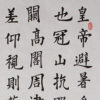 皇帝避暑乎
也冠山抗殿
闕高閣周建
差仰視則迢